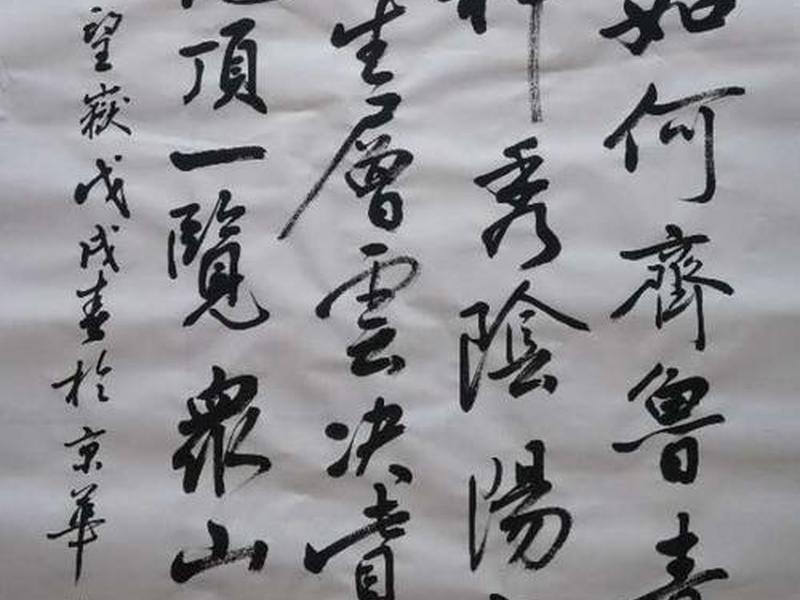 如何齊魯青
神秀陰陽
生層雲决眥
絕頂一覽衆山
望嶽戊戌春於京華